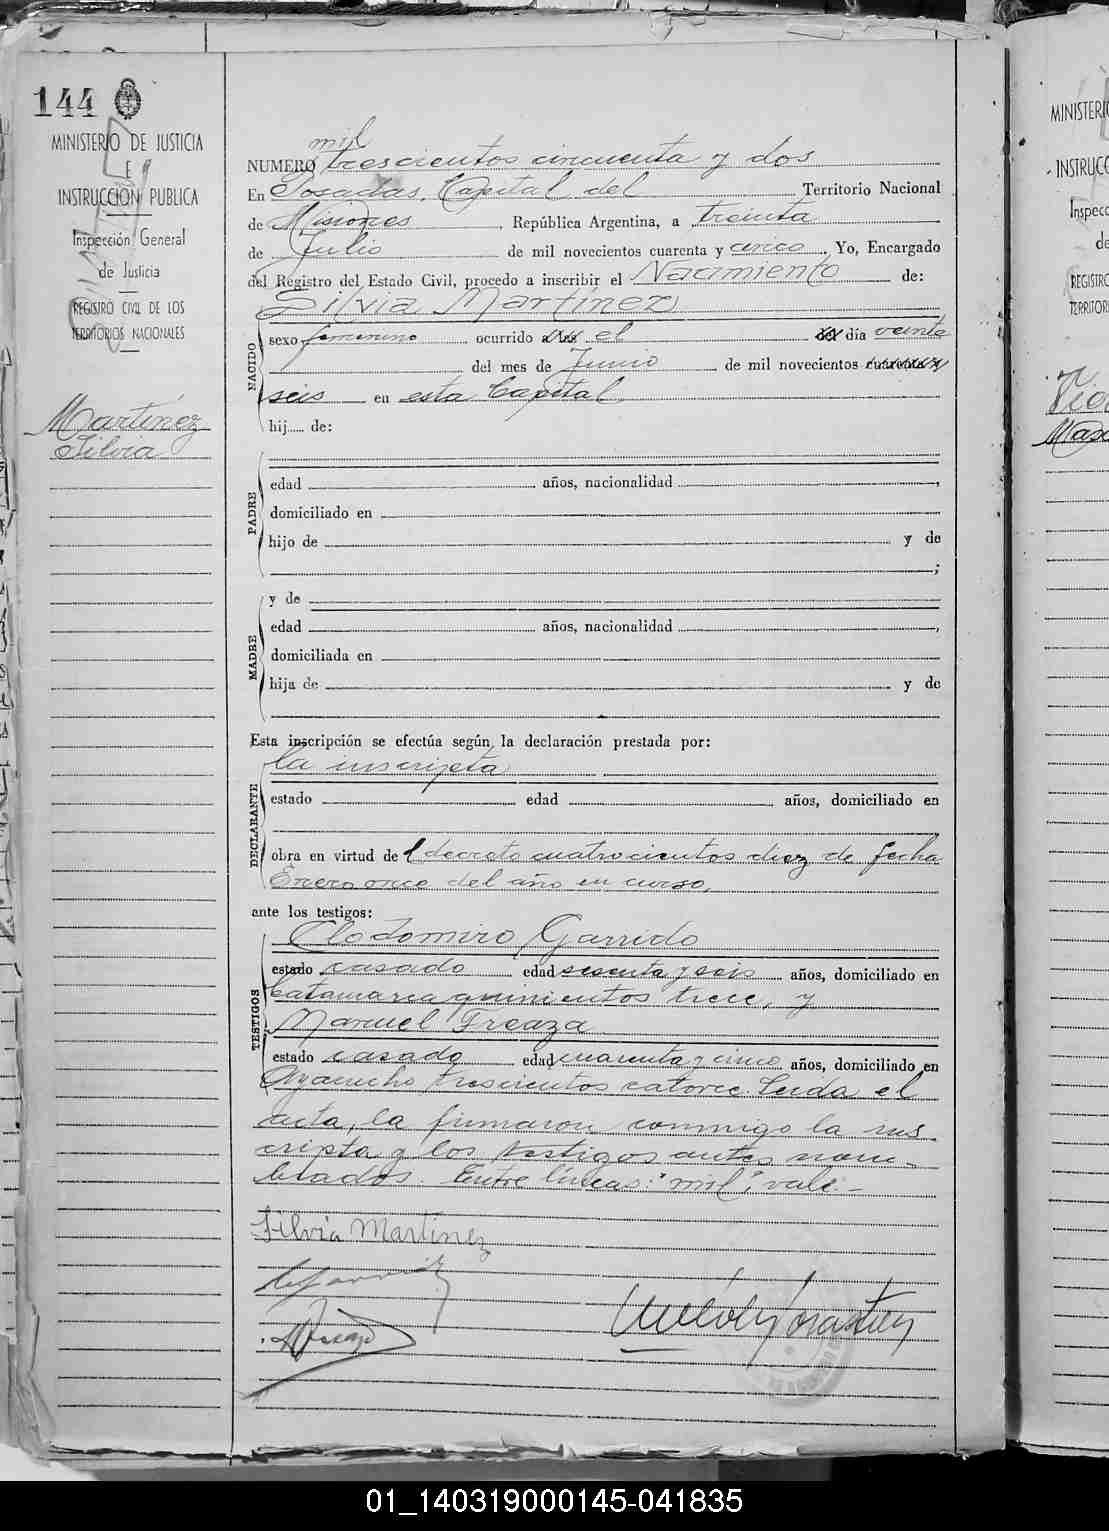 144
MINISTERIO DE JUSTICIA
E
INSTRUCCION PUBLICA
Inspección General
de Justicia
REGISTRO CIVIL DE LOS
TERRITORIOS NACIONALES
Martínez
Silvia
mil
NUMERO trescientos cincuenta y dos
En Posadas, Capital del Territorio Nacional
de Misiones, República Argentina, a treinta
de Julio de mil novecientos cuarenta y cinco, Yo, Encargado
del Registro del Estado Civil, procedo a inscribir el Nacimiento de:
Silvia Martínez
NACIDO
sexo femenino ocurrido a las el del día veinte
del mes de Junio de mil novecientos cuarenta y
seis en esta Capital
hij...... de:
PADRE
edad años, nacionalidad ,
domiciliado en
hijo de y de
;
MADRE
y de
edad años, nacionalidad ,
domiciliada en
hija de y de
Esta inscripción se efectúa según la declaración prestada por:
DECLARANTE
la inscripta
estado edad años, domiciliado en
obra en virtud del decreto cuatrocientos diez de fecha
Enero once del año en curso,
ante los testigos:
TESTIGOS
Clodomiro Garrido
estado casado edad sesenta y seis años, domiciliado en
Catamarca quinientos trece, y
Manuel Freaza
estado casado edad cuarenta y cinco años, domiciliado en
Ayacucho trescientos catorce. Leida el
acta, la firmaron conmigo la ins-
cripta y los testigos antes nom-
brados. Entre líneas: "mil", vale.-
Silvia Martinez
MINISTERIO
INSTRUCC
Inspecc
de
REGISTRO
TERRITOR
01_140319000145-041835